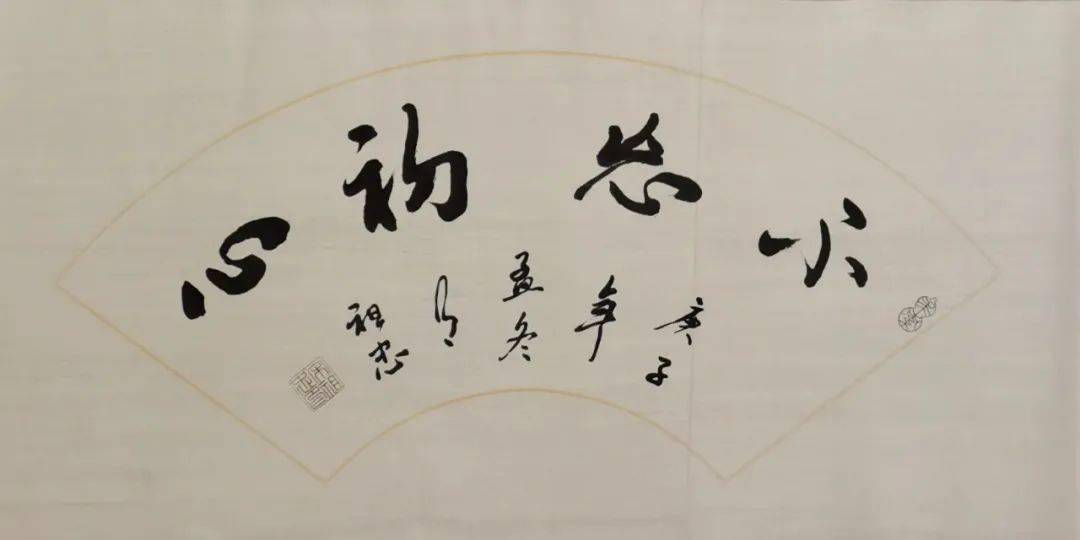 不忘初心
庚子
年
孟冬
月
祖